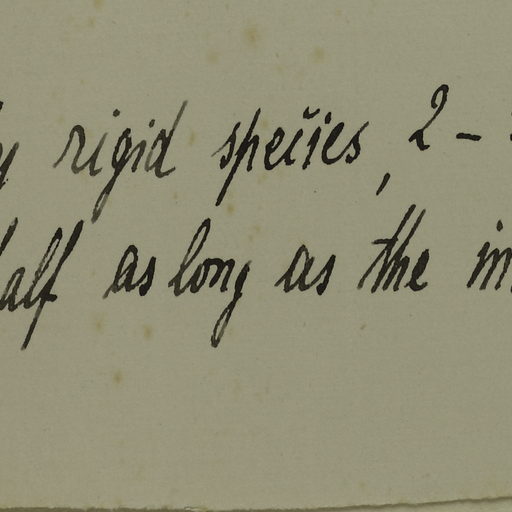 rigid species, 2 -
half as long as the